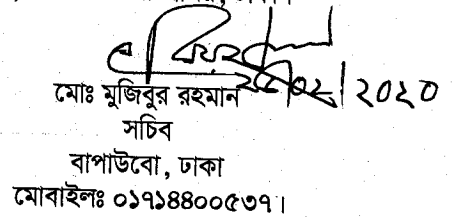 ২৫/০২/২০২০
মোঃ মুজিবুর রহমান
সচিব
বাপাউবো, ঢাকা
মোবাইলঃ ০১৭১৪৪০০৫৩৭।